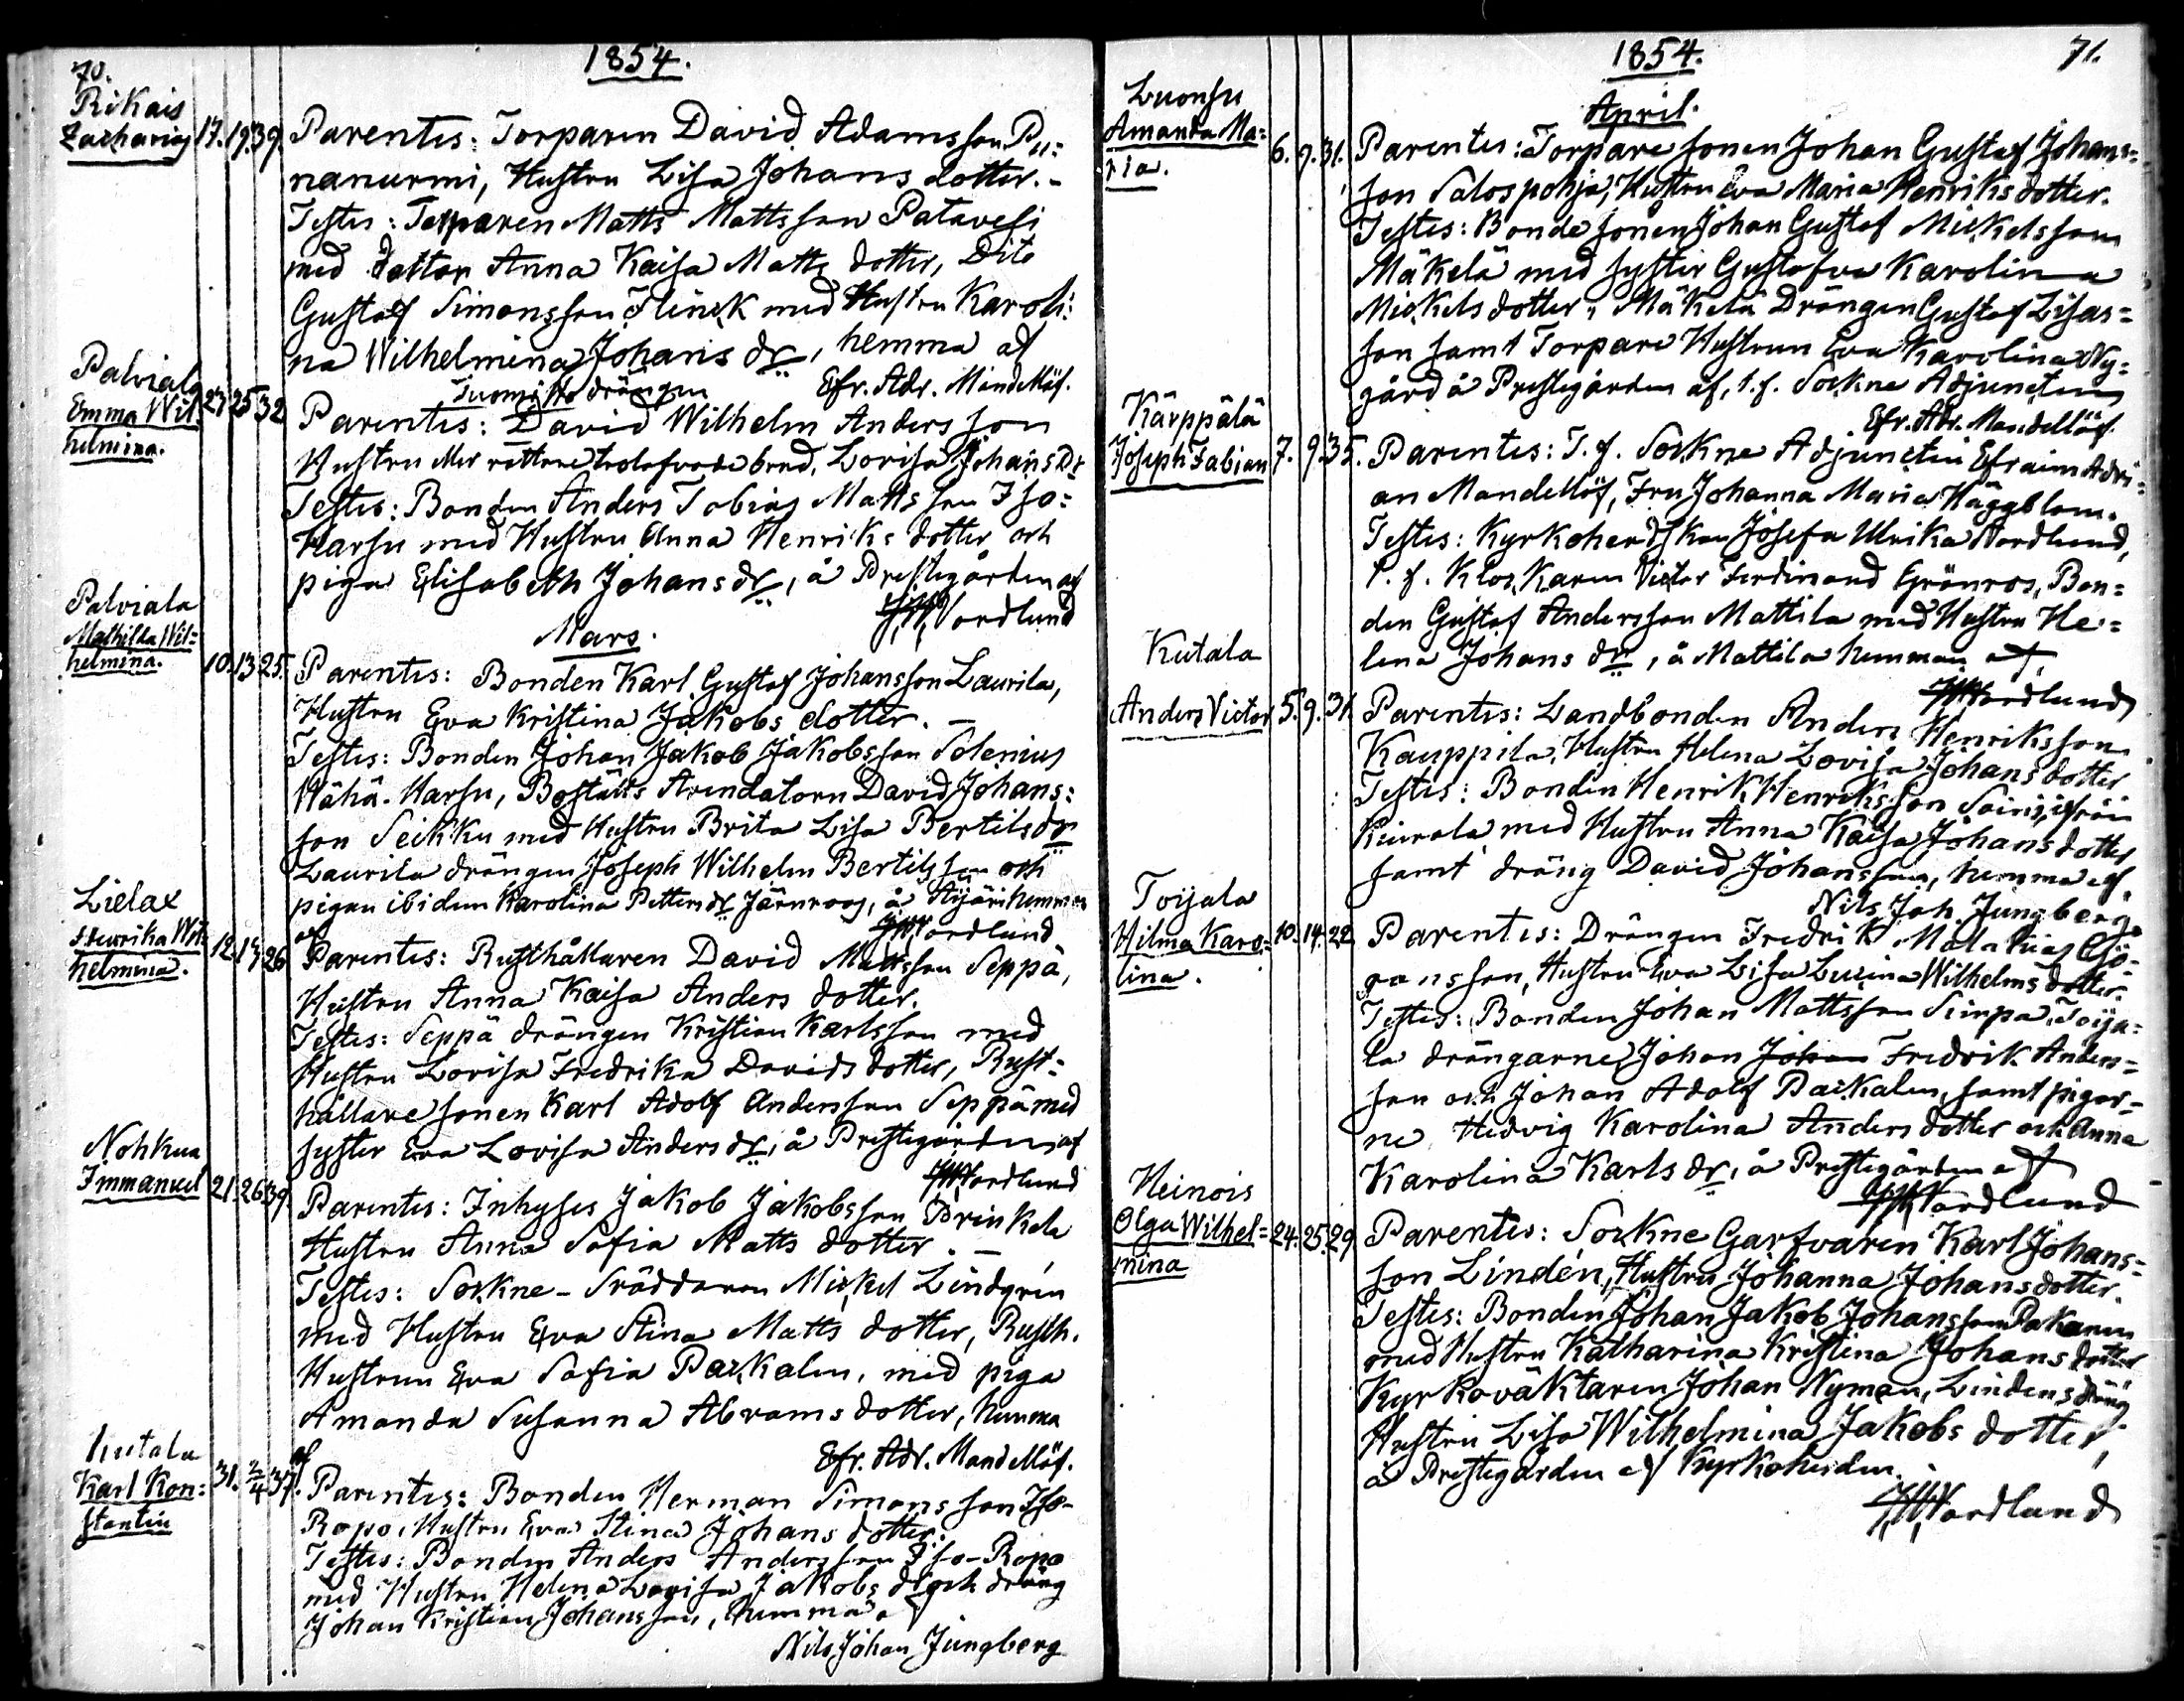 70.
1854.
Rikais
Zacharias 17. 19. 39. Parentes: Torparen David Adamsson Pu=
nanurmi, Hustru Lisa Johans dotter. -
Testes: Torparen Matts Mattsson Patavesi
med dotter Anna Kaisa Matts dotter, Dito
Gustaf Simonsson Flinck med Hustru Karoli=
na Wilhelmina Johans dr, hemma af
Efr. Adr. Mandellöf.
Palviala
Emma Wil= 23 25 32
helmina.
drängen
Parentes: David Wilhelm Andersson
Hustru eller rättare trolofvade brud, Lovisa Johans Dr
Testes: Bonden Anders Tobias Mattsson Iso=
Karsu med Hustru Anna Henriks dotter och
piga Elisabeth Johans dr, å Prestegården af
Nordlund
Mars.
Palviala
Mathilda Wil=
helmina. 10. 13 25. Parentes: Bonden Karl Gustaf Johansson Laurila,
Hustru Eva Kristina Jakobs dotter. -
Testes: Bonden Johan Jakob Jakobsson Solenius
Wähä-Karsu, Boställs Arendatorn David Johans=
son Seikku med Hustru Brita Lisa Bertils dr
Laurila drängen Joseph Wilhelm Bertilsson och
pigan ibidem Karolina Petters dr Järnroos, å Äijäri hemman
af Nordlund
Lielax
Henrika Wil= 12. 14 26
helmina.
Parentes: Rusthållaren David Mattsson Seppä,
Hustru Anna Kaisa Anders dotter.
Testes: Seppä drängen Kristian Karlsson med
Hustru Lovisa Fredrika Davids dotter, Rust=
hållare sonen Karl Adolf Andersson Seppä med
syster Eva Lovisa Anders dr, å Prestegården af
Nordlund
Nohkua
Immanuel 21. 26 39. Parentes: Inhyses Jakob Jakobsson Prinkela
Hustru Anna Sofia Matts dotter. -
Testes: Sockne-Skräddaren Mickel Lindgren
med Hustru Eva Stina Matts dotter, Rusth.
Hustrun Eva Sofia Packalen, med piga
Amanda Susanna Abrams dotter, hemma
af Efr. Adr. Mandellöf.
Kutala
Karl Kon= 31. 2/4 37.
stantin
Parentes: Bonden Herman Simonsson Iso-
Ropo, Hustru Eva Stina Johans dotter.
Testes: Bonden Anders Andersson Iso-Ropo
med Hustru Helena Lovisa Jakobs dr och dräng
Johan Kristian Johansson, hemma af
Nils Johan Jungberg
1854. 71.
April.
Luonsu
Amanda Ma= 6. 9. 31.
ria.
Parentes: Torpare sonen Johan Gustaf Johans=
son Salospohja, Hustru Eva Maria Henriks dotter.
Testes: Bonde sonen Johan Gustaf Mickelsson
Mäkelä med syster Gustafva Karolina
Mickels dotter, Mäkelä Drängen Gustaf Lisas=
son samt Torpare Hustrun Eva Karolina Ny=
gård å Prestegården af, t. f. Sockne Adjuncten
Efr. Adr. Mandellöf.
Kärppälä
Joseph Fabian 7. 9. 35. Parentes: T. f. Sockne Adjuncten Efraim Adri=
an Mandellöf, Fru Johanna Maria Häggblom.
Testes: Kyrkoherdskan Josefa Ulrika Nordlund,
t. f. Klockaren Victor Ferdinand Grönroos, Bon=
den Gustaf Andersson Mattila med Hustru He=
lena Johans dr, å Mattila hemman af,
Nordlund
Kutala
Anders Victor 5. 9. 31. Parentes: Landbonden Anders Henriksson
Kauppila, Hustru Helena Lovisa Johans dotter
Testes: Bonden Henrik Henriksson Soini, ifrån
Kiurala med Hustru Anna Kaisa Johans dotter
samt dräng David Johansson, hemma af.
Nils Joh. Jungberg.
Toijala
Hilma Karo= 10. 14. 22
lina.
Parentes: Drängen Fredrik Mathias Gö=
ransson, Hustru Eva Lisa Lucina Wilhelms dotter.
Testes: Bonden Johan Mattsson Simpa, Toija=
la drängarne Johan Johan Fredrik Anders=
son och Johan Adolf Packalen, samt pigor=
ne Hedvig Karolina Anders dotter och Anna
Karolina Karls dr, å Prestegården af
Nordlund
Heinois
Olga Wilhel= 24. 25. 29
mina
Parentes: Sockne Garfvaren Karl Johans=
son Lindén, Hustru Johanna Johans dotter.
Testes: Bonden Johan Jakob Johansson Pakaren
med Hustru Katharina Kristina Johans dotter
Kyrkoväktaren Johan Nyman, Lindens dräng
Hustru Lisa Wilhelmina Jakobs dotter,
å Prestegården af Kyrkoherden.
Nordlund